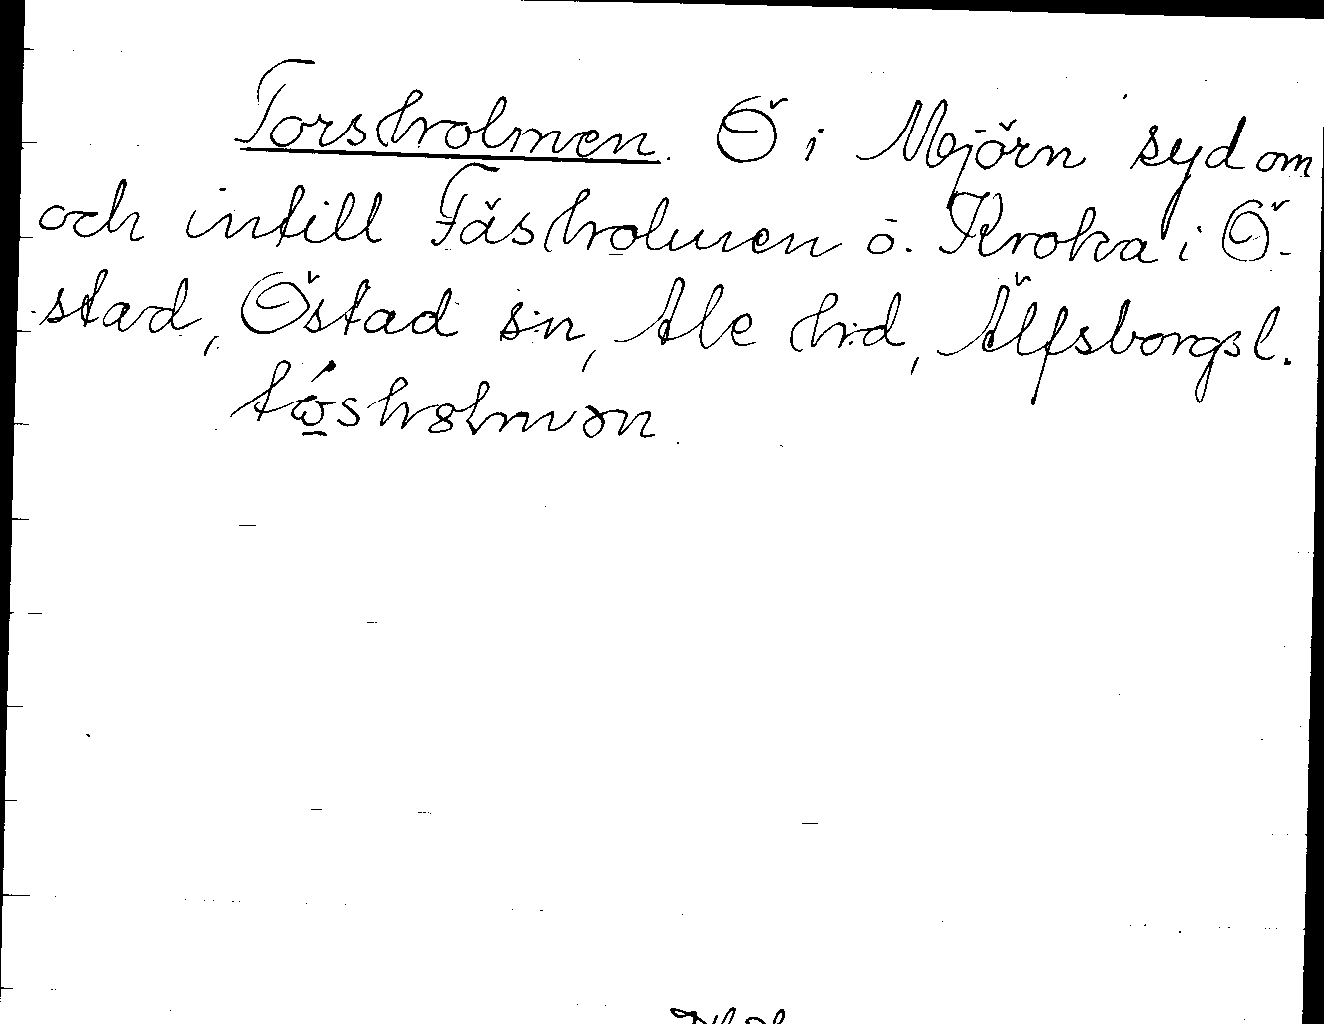 Torsholmen. Ö i Mjörn syd om
och intill Fåsholmen ö. Kroka i Ö-
stad, Östad sn, Ale hd, Älfsborgs l.